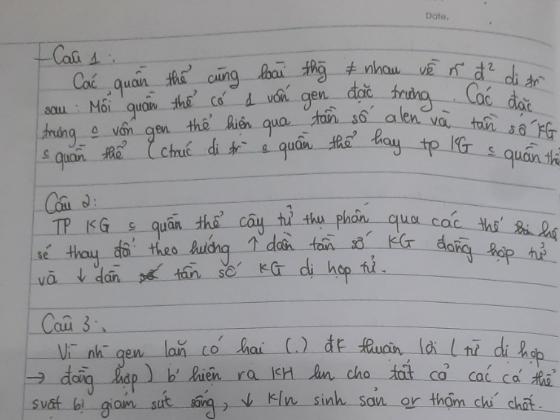 Date.
Câu 1:
Các quần thể cùng loài thg ≠ nhau về n~ đ² di tr
sau: Mỗi quần thể có 1 vốn gen đặc trưng. Các đặc
trưng c̉ vốn gen thể hiện qua tần số alen và tần số KG
c̉ quần thể (trúc di tr c̉ quần thể hay tp KG c̉ quần thể
Câu 2:
TP KG c̉ quần thể cây tử thụ phấn qua các thế hệ
sẽ thay đổi theo hướng ↑ dần tần số KG đồng hợp tử
và ↓ dần tần số KG dị hợp tử.
Câu 3:
Vì nh gen lặn có hại (.) đk thuận lợi (từ dị hợp
→ đồng hợp) b' hiện ra KH làm cho tất cả các cá thể
suất bị giảm sức sống, ↓ k/n sinh sản or thậm chí chết.